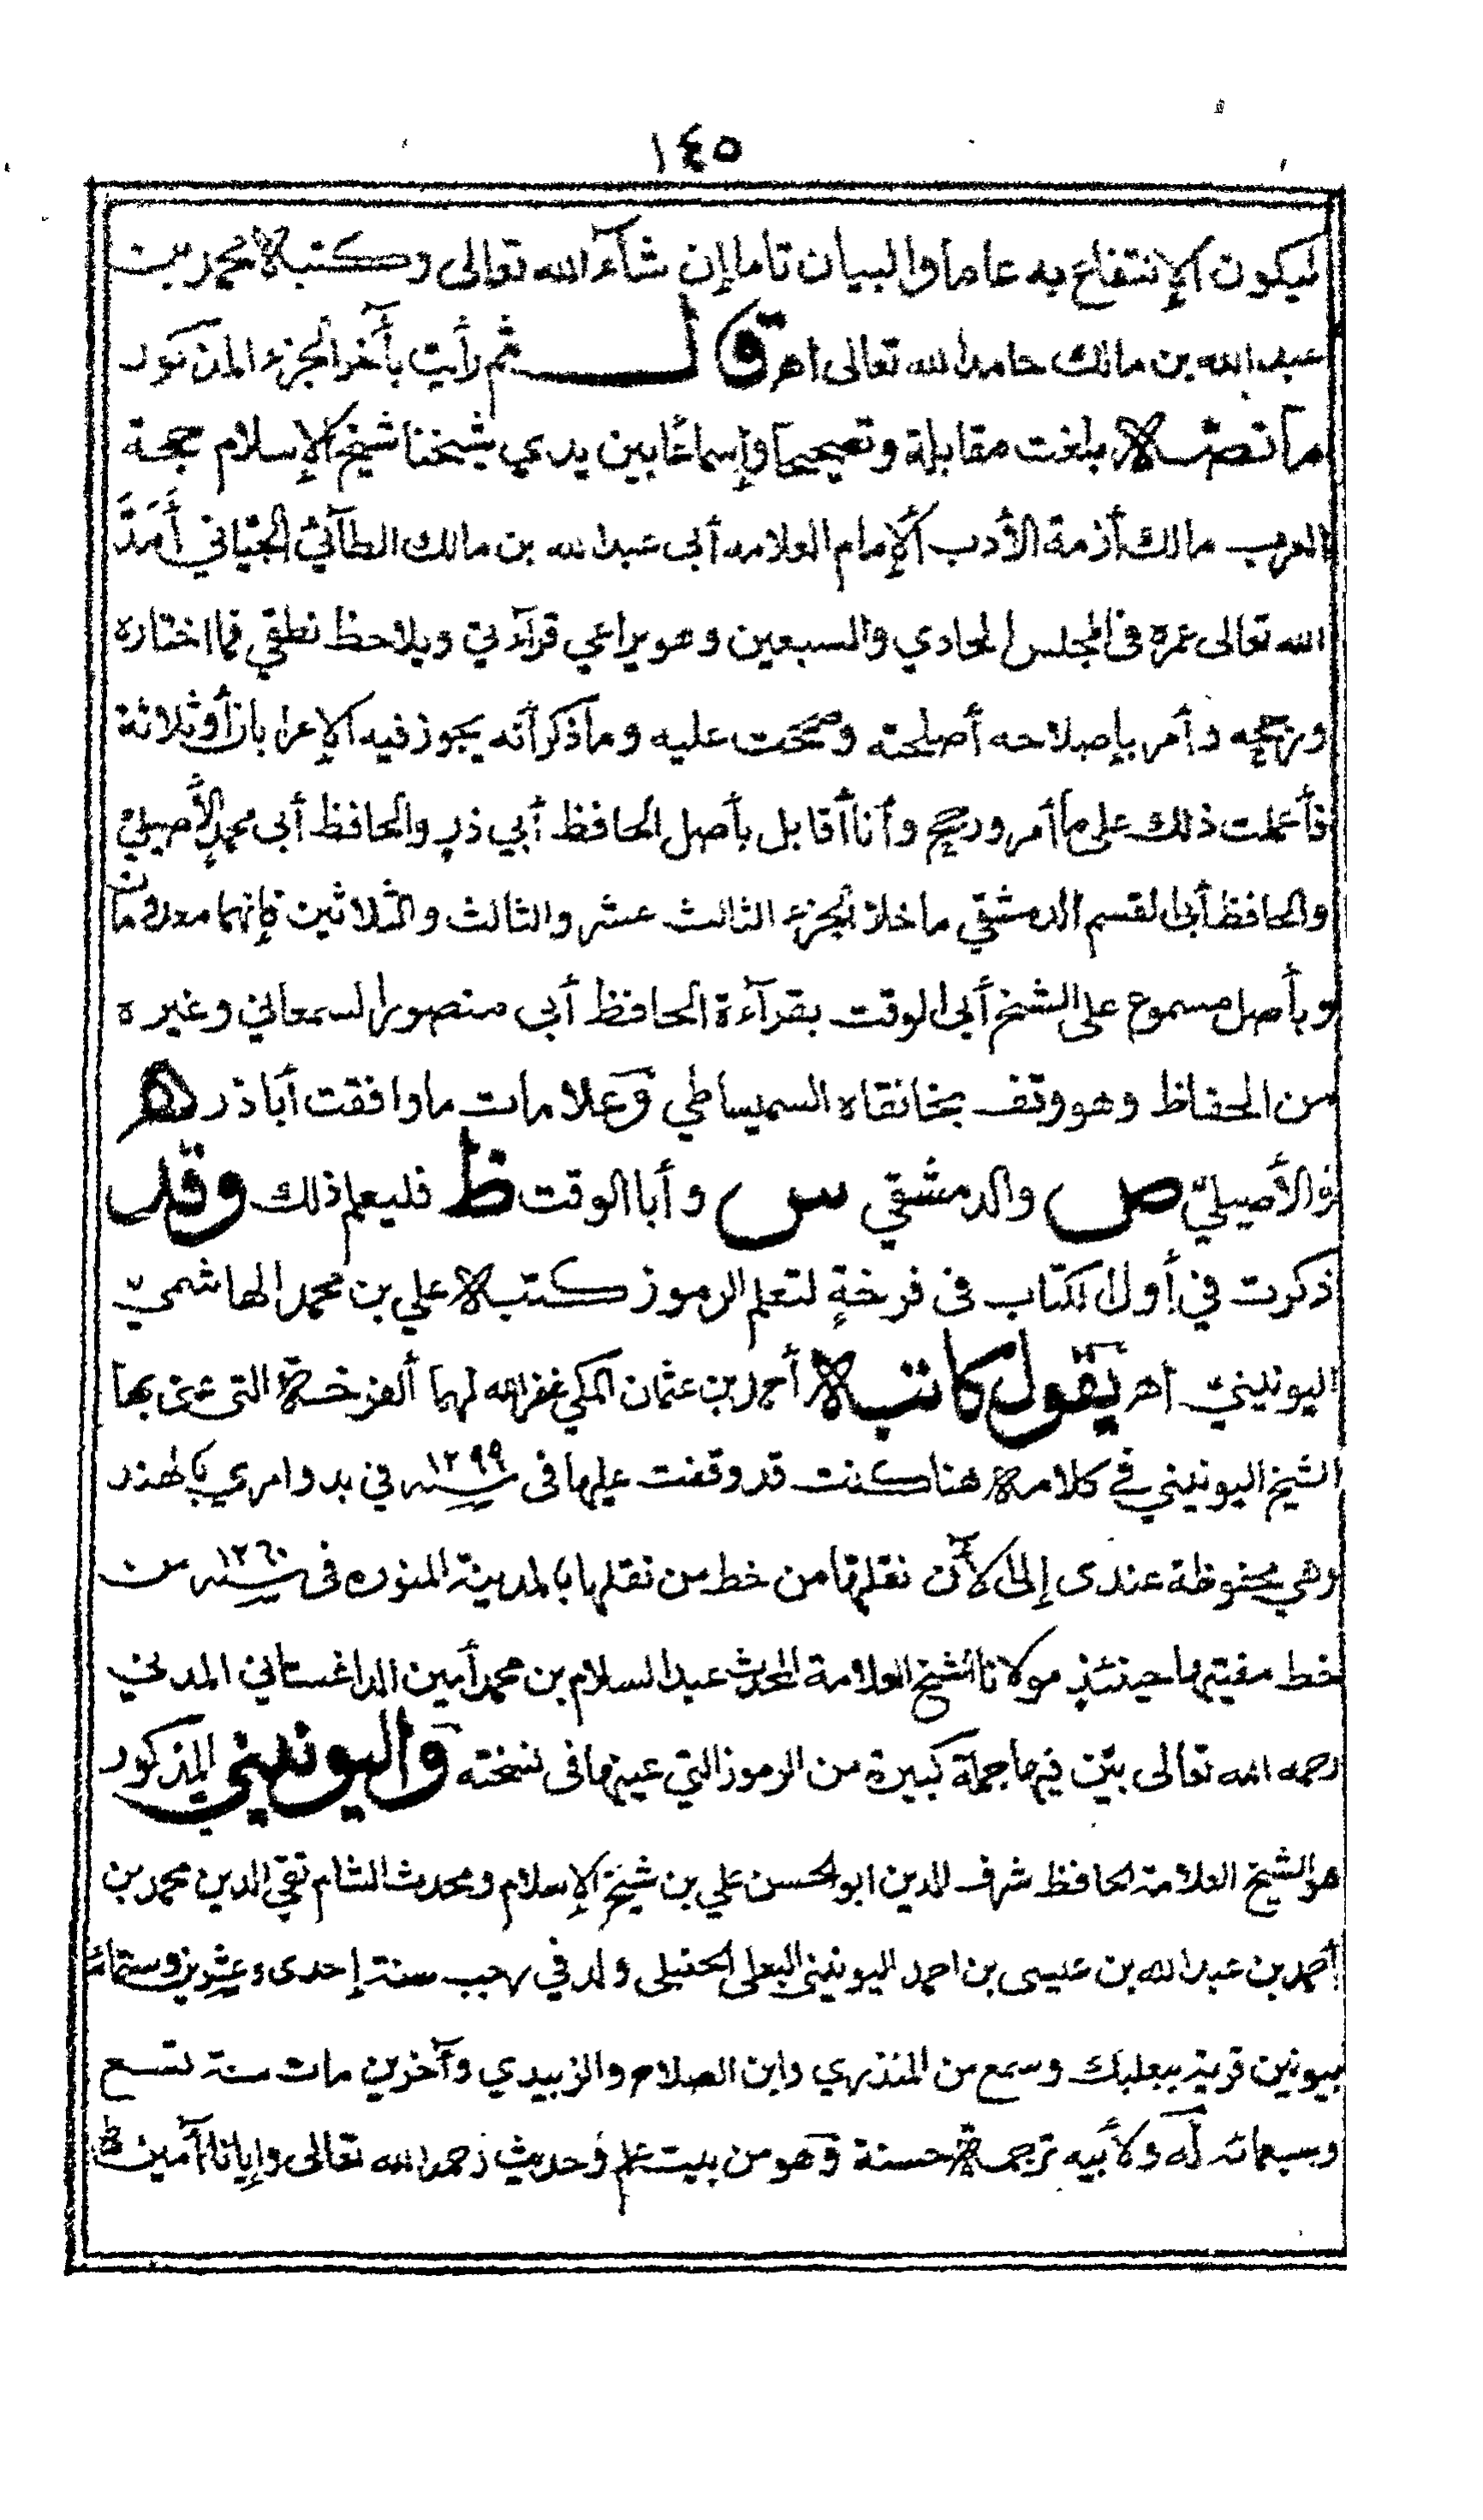 ١٤٥
ليكون الإنتفاع به عاما والبيان تاما إن شآء الله تعالى وكتبه محمد بن
عبد الله بن مالك حامدا لله تعالى اهـ قال ثم رأيت بآخر الجزء المذكور
ما نصه بلغت مقابلة وتصحيحا وإسماعًا بين يدي شيخنا شيخ الإسلام حجة
العرب مالك أزمة الأدب ألإمام العلامه أبى عبد الله بن مالك الطآئيّ الجيّاني أمَدَّ
الله تعالى عمره فى المجلس الحادي والسبعين وهو يراعي قرآءتي ويلاحظ نطقي فما اختاره
ورجحه وأمر بإصلاحه أصلحته وصححت عليه وما ذكر أنه يجوز فيه الإعرابان أو ثلاثة
فأعملت ذلك على ما أمر ورجح وأنا أقابل بأصل الحافظ أبي ذر والحافظ أبى محمد الأصيلي
والحافظ أبى القسم الدمشقي ما خلا الجزء الثالث عشر والثالث والثلاثين فإنهما معدومان
وبأصل مسموع على الشيخ أبى الوقت بقرآءة الحافظ أبى منصور السمعاني وغيره
من الحفاظ وهو وقف بخانقاه السميساطي وعلامات ما وافقت أبا ذر ه
والأصيليّ ص والدمشقي س وأبا الوقت ظ فليعلم ذلك وقد
ذكرت في أول الكتاب فى فرخةٍ لتعلم الرموز كتبه علي بن محمد الهاشمي
اليونيني اهـ يقول كاتبه أحمد بن عثمان المكي غفر الله لهما ألفرخة التى عنى بها
الشيخ اليونيني في كلامه هنا كنت قد وقفت عليها فى سنه ١٢٩٩ في بدوامري بالهند
وهي محفوظة عندى إلى الآن نقلتها من خط من نقلها بالمدينة المنوره فى سنه ١٢٦٠ من
خط مفتيها حينئذٍ مولانا الشيخ العلامة المحدث عبد السلام بن محمد أمين الداغستاني المدني
رحمه الله تعالى بيّن فيها جملة كبيرة من الرموز التي عينها فى نسخته واليونيني المذكور
هو الشيخ العلامة الحافظ شرف الدين ابو الحسن علي بن شيخ الإسلام ومحدث الشام تقي الدين محمد بن
أحمد بن عبد الله بن عيسى بن احمد اليونيني البعلى الحنبلى ولد في رجب سنة إحدى وعشرين وستمائة
بيونين قرية ببعلبك وسمع من المنذري وابن الصلاح والزبيدي وآخرين مات سنة تسع
وسبعمائه له ولأبيه ترجمة حسنة وهو من بيت علم وحديث رحمه الله تعالى وإيانا آمين